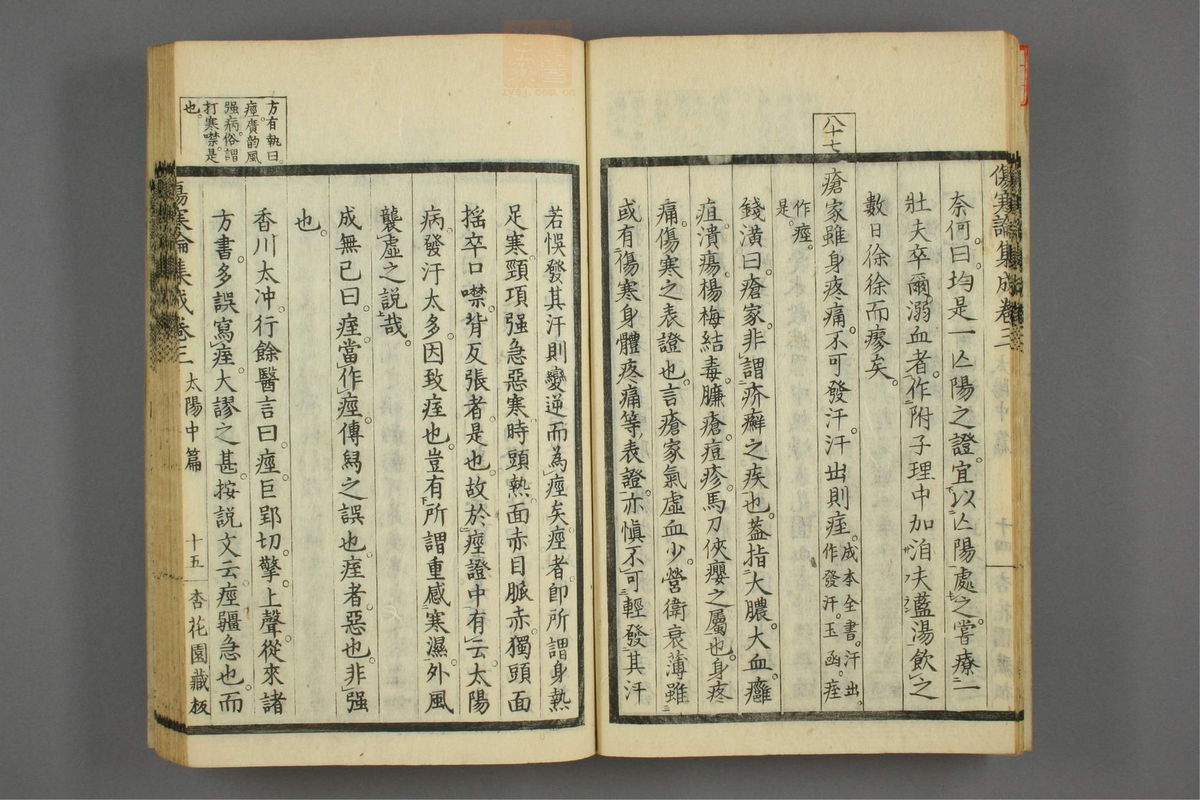 傷寒論集成卷三
奈何曰均是一亾陽之證宜以亾陽處之嘗療一
壯夫卒爾溺血者作附子理中加洎夫藍湯飲之
數日徐徐而瘳矣
八十七
瘡家雖身疼痛不可發汗汗出則痓成本全書汗出作發汗玉函痓
作痙是
錢潢曰瘡家非謂疥癬之疾也葢指大膿大血癰
疽潰瘍楊梅結毒臁瘡痘疹馬刀俠癭之屬也身疼
痛傷寒之表證也言瘡家氣虛血少營衛衰薄雖
或有傷寒身體疼痛等表證亦慎不可輕發其汗
若悞發其汗則變逆而為痙矣痙者卽所謂身熱
足寒頸項强急惡寒時頭熱面赤目脈赤獨頭面
搖卒口噤背反張者是也故於痙證中有云太陽
病發汗太多因致痓也豈有所謂重感寒濕外風
襲虛之說哉
成無己曰痓當作痙傳冩之誤也痓者惡也非强
也
香川太冲行餘醫言曰痙巨郢切擎上聲從來諸
方書多誤寫痓大謬之甚按說文云痙彊急也而
方有執曰
痙賡韵風
强病俗謂
打寒噤是
也
傷寒論集成卷三 太陽中篇 十五 杏花園藏板